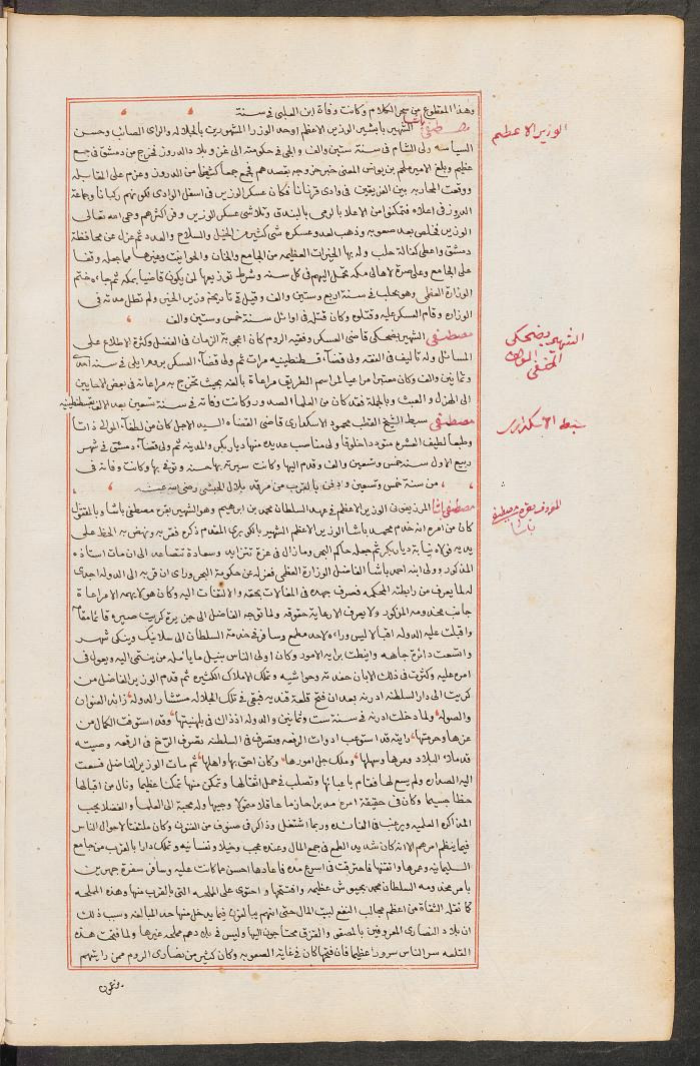 وهذا المقطوع من سحر الكلام وكانت وفاة ابن الصلبى فى سنة
مصطفى باشا الشهير بابشير الوزير الاعظم اوحد الوزرا المشهورين بالجلاله والراى الصائب وحسن
السياسه ولى الشام فى سنة ستين والف والجى فى حكومته الى غزو بلاد الدروز فخرج من دمشق فى جمع
عظيم وبلغ الامير ملحم بن يونس المعنى خبر خروجه بقصدهم فجمع جمعا كثيفا من الدروز وعزم على المقابله
ووقعت المحاربه بين الفريقين فى وادى قرنانا فكان عسكر الوزير فى اسفل الوادى فكونهم ركبانا وجماعة
الدروز فى اعلاه فتمكنوا من الاعلا بالرمى بالبندق وتلاشى عسكر الوزير وفر اكثرهم وحمى الله تعالى
الوزير فخلص بعد صعوبه وذهب لعدو عسكره شى كثير من الخيل والسلاح والعدد ثم عزل عن محافظة
دمشق واعطى كفالة حلب وله بها الخيرات العظيمه من الجامع والخان والحوانيت وغيرها مما جعله وقفا
على الجامع وعلى صرة لاهالى مكه تحمل اليهم فى كل سنه وشرط توزيعها لمن يكون قاضيا بمكه ثم جاءه ختم
الوزارة العظمى وهو بحلب فى سنة اربع وستين والف وقيل فى تاريخه وزير الخير ولم تطل مدته فى
الوزاره وقام العسكر عليه وقتلوه وكان قتله فى اوائل سنة خمس وستين والف
مصطفى الشهير بضحكى قاضى العسكر وفقيه الروم كان اعجوبة الزمان فى الفضل وكثرة الاطلاع على
المسائل وله تاليف فى الفقه ولى قضاء قسطنطينيه مرات ثم ولى قضاء العسكر بروم ايلى فى سنة احدى
وثمانين والف وكان معتبرا مراعيا لمراسم الطريق مراعاة بالغه بحيث تخرج به مراعاته فى بعض الاحايين
الى الهزل والعبث وبالجملة فقد كان من العلماء الصدور وكانت وفاته فى سنة تسعين بعد الالف بقسطنطينيه
مصطفى سبط الشيخ القطب محمود الاسكدارى قاضى القضاء السيد الاجل كان من لطفاء الموالى ذاتا
وطبعا لطيف العشره متوددا خلوقا ولى مناصب عديده منها ديار بكر والمدينه ثم ولى قضاء دمشق فى شهر
ربيع الاول سنة خمس وتسعين والف وقدم اليها وكانت سيرته بها حسنه وتوفى بها وكانت وفاته فى
من سنة خمس وتسعين ودفن بالقرب من مرقد بلال الحبشى رضى الله عنه
مصطفى باشا المرزيفونى الوزير الاعظم فى عهد السلطان محمد بن ابراهيم وهو الشهير بقره مصطفى باشا وبالمقتول
كان من امره انه خدم محمد باشا الوزير الاعظم الشهير بالكوبرى المقدم ذكره فقربه ونهض به الحظ على
يديه فولاه نيابة ديار بكر ثم جعله حاكم البحر وما زال فى عزة تتزايد وسعادة تتصاعد الى ان مات استاذه
المذكور وولى ابنه احمد باشا الفاضل الوزارة العظمى فعزله عن حكومة البحر وراى ان قربه الى الدوله اجدى
له لما يعرف من رابطته المحكمه فصرف جهده فى المغالات بحقه والالتفات اليه وكان هو لا يهمه الا مراعاة
جانب مخدومه المزكور ولا يعرف الا رعاية حقوقه ولما توجه الفاضل الى جزيرة كريت صيره قائمامقام
واقبلت عليه الدوله اقبالا ليس وراءه لاحد مطمع وسافر فى خدمة السلطان الى سلانيك وينكى شهر
واتسعت دائرة جاهه وانيطت برايه الامور وكان اولى الناس بنيل مايامله من ينتمى اليه ويعول فى
امره عليه وكثرت فى ذلك الابان حفدته وحواشيه وتملك الاملاك الكثيره ثم قدم الوزير الفاضل من
كريت الى دار السلطنه ادرنه بعد ان فتح قلعة قنديه فبقى فى تلك الجلاله مستشار الدوله زائد العنوان
والصوله ولما دخلت ادرنه فى سنة ست وثمانين والدوله اذذاك فى بلهنيتها وقد استوفت الكمال من
عزها وحرمتها رايته قد استوعب ادوات الرفعه وتصرف فى السلطنه تصرف الرخ فى الرقعه وصيته
قد ملأ البلاد وعرها وسهلها وملك جل امورها وكان احق بها واهلها ثم مات الوزير الفاضل فسعت
اليه الصداره ولم يسع لها فقام باعبائها وتصلب فى حمل اثقالها وتمكن منها تمكنا عظيما ونال من اقبالها
حظا جسيما وكان فى حقيقة امره مدبرا حازما عاقلا صولا وجيها وله محبة الى العلما والفضلا يحب
المذاكره العلميه ويرغب فى الفائده وربما اشتغل وذاكر فى صنوف من الفنون وكان ملتفتا لاحوال الناس
فيما ينظم امرهم الا انه كان شديد الطمع فى جمع المال وعنده عجب وخيلا ونفسانيه وتملك دارا بالقرب من جامع
السليمانيه وعمرها واتقنها فاحترقت فى اسرع مده فاعادها احسن مما كانت عليه وسافر سفرة جهرين
بامر مخدومه السلطان محمد بجيوش عظيمه وافتتحها واحتوى على الملحه التى بالقرب منها وهذه المملحه
كما نقله الثقاة من اعظم مجالب النفع لبيت المال حتى انهم يبالغون فيما يدخل منها حد المبالغه وسبب ذلك
ان بلاد النصارى المعروفين بالمصقو والقزق محتاجون اليها وليس فى بلادهم مملحه غيرها ولما فتحت هذه
القلعه سر الناس سرورا عظيما فان فتحها كان فى غاية الصعوبه وكان كثير من نصارى الروم ممن رايتهم
الوزير الاعظم
الشهير بضحكى
الحنفى
سبط الاسكدارى
المعروف بقره مصطفى
باشا